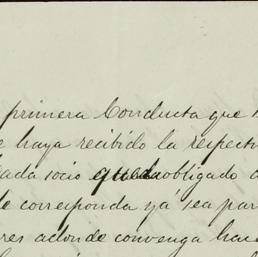 primera Conducta que s
haya recibido la respecti
cada socio queda obligado a
le corresponda yá sea par
res adonde convenga hace